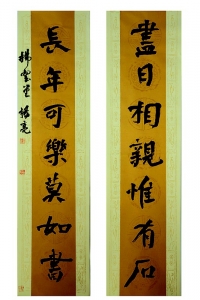 盡日相親惟有石
長年可樂莫如書